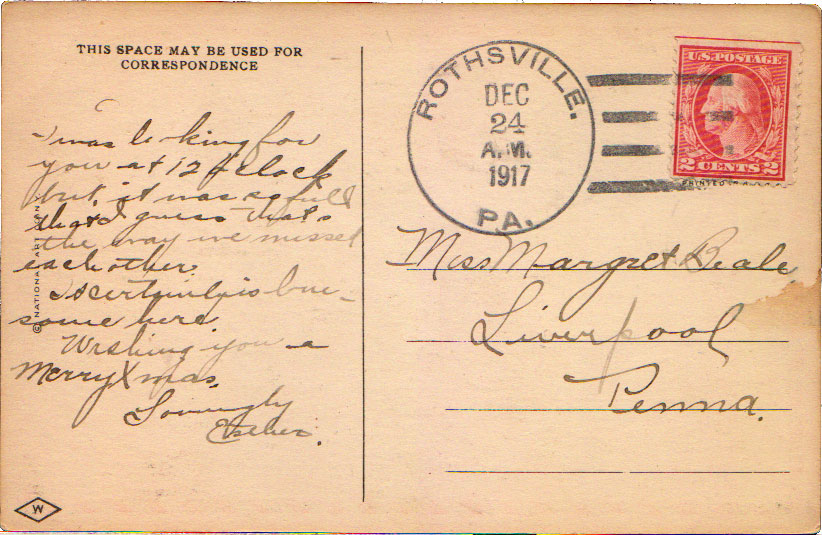 THIS SPACE MAY BE USED FOR
CORRESPONDENCE
I was looking for
you at 12 o'clock
but it was so full
that I guess thats
the way we missed
each other.
It certainly is lone-
some here.
Wishing you a
Merry Xmas.
Lovingly
Esther.
© NATIONAL ART
W
ROTHSVILLE.
DEC
24
A.M.
1917
PA.
U.S. POSTAGE
2 CENTS 2
Miss Margret Beale
Liverpool
Penna.